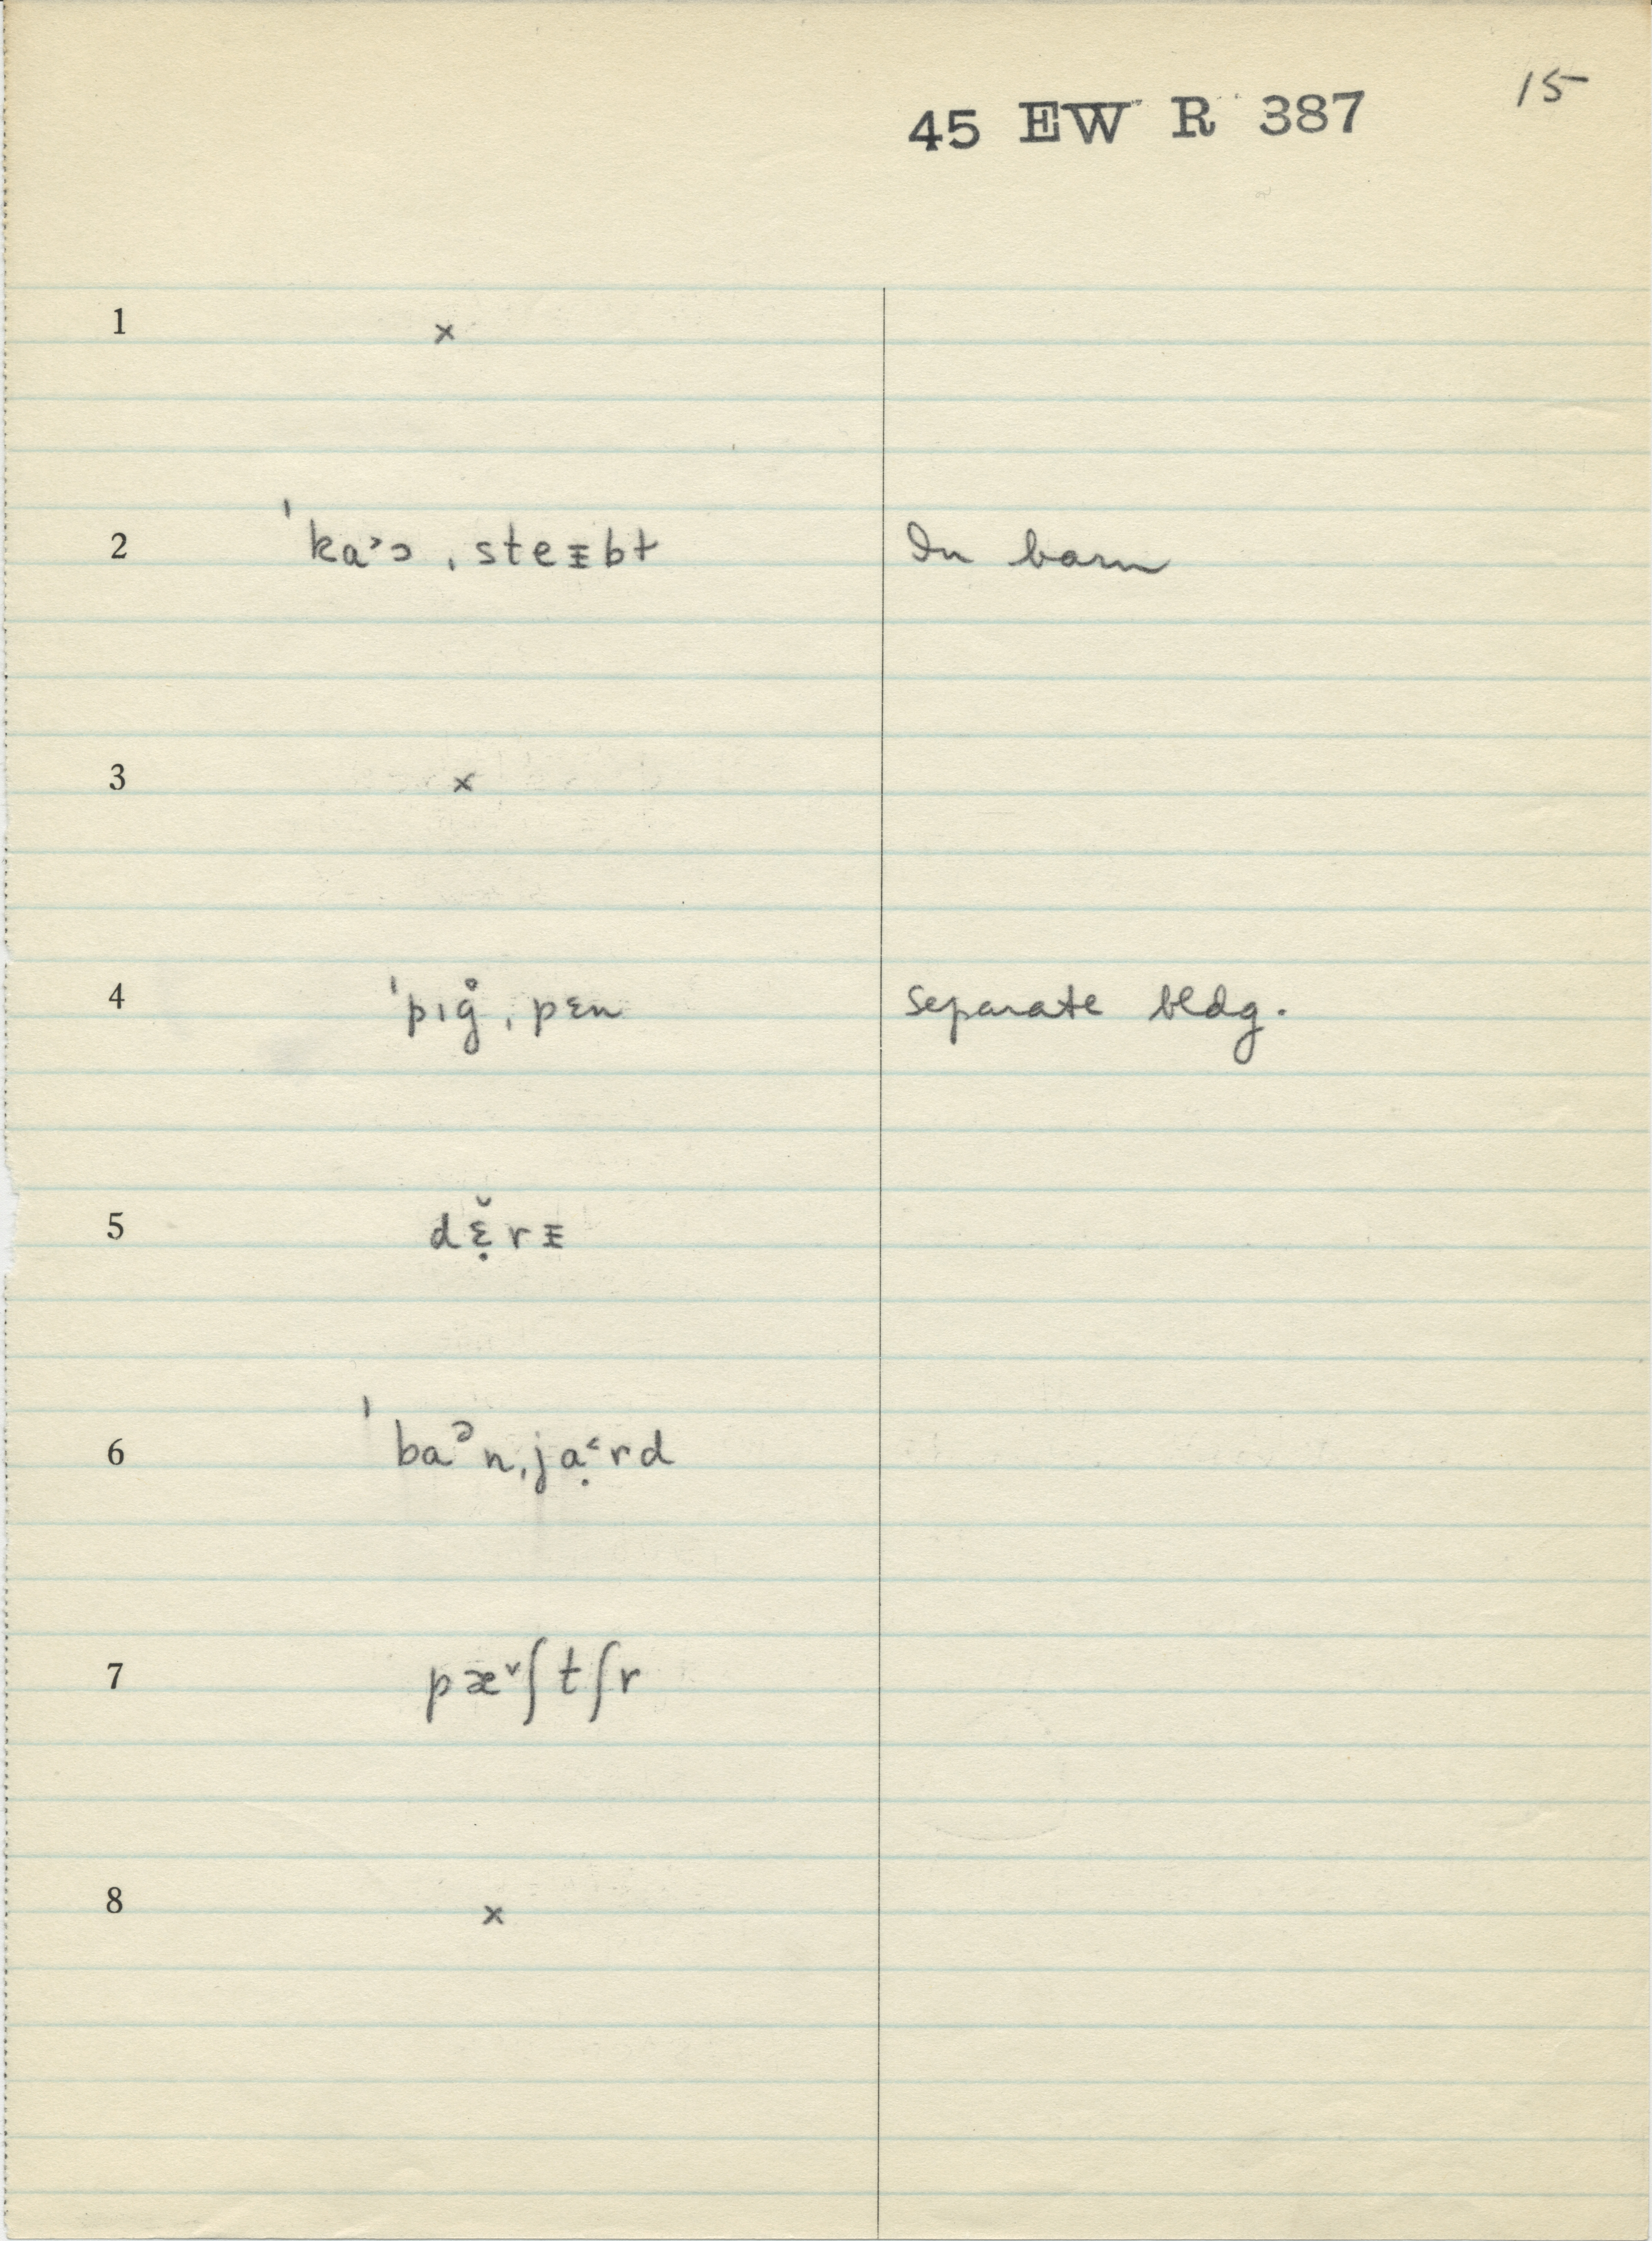 15
45 EW R 387
1 x
2 ˈka˃ɔ ˌsteᵻbɫ In barn
3 x
4 ˈpɪg̊ ˌpɛn Separate bldg.
5 dɛ̣̆rᵻ
6 ˈbaᵊnˌjạ˂rd
7 pæ˅ʃtʃr
8 x